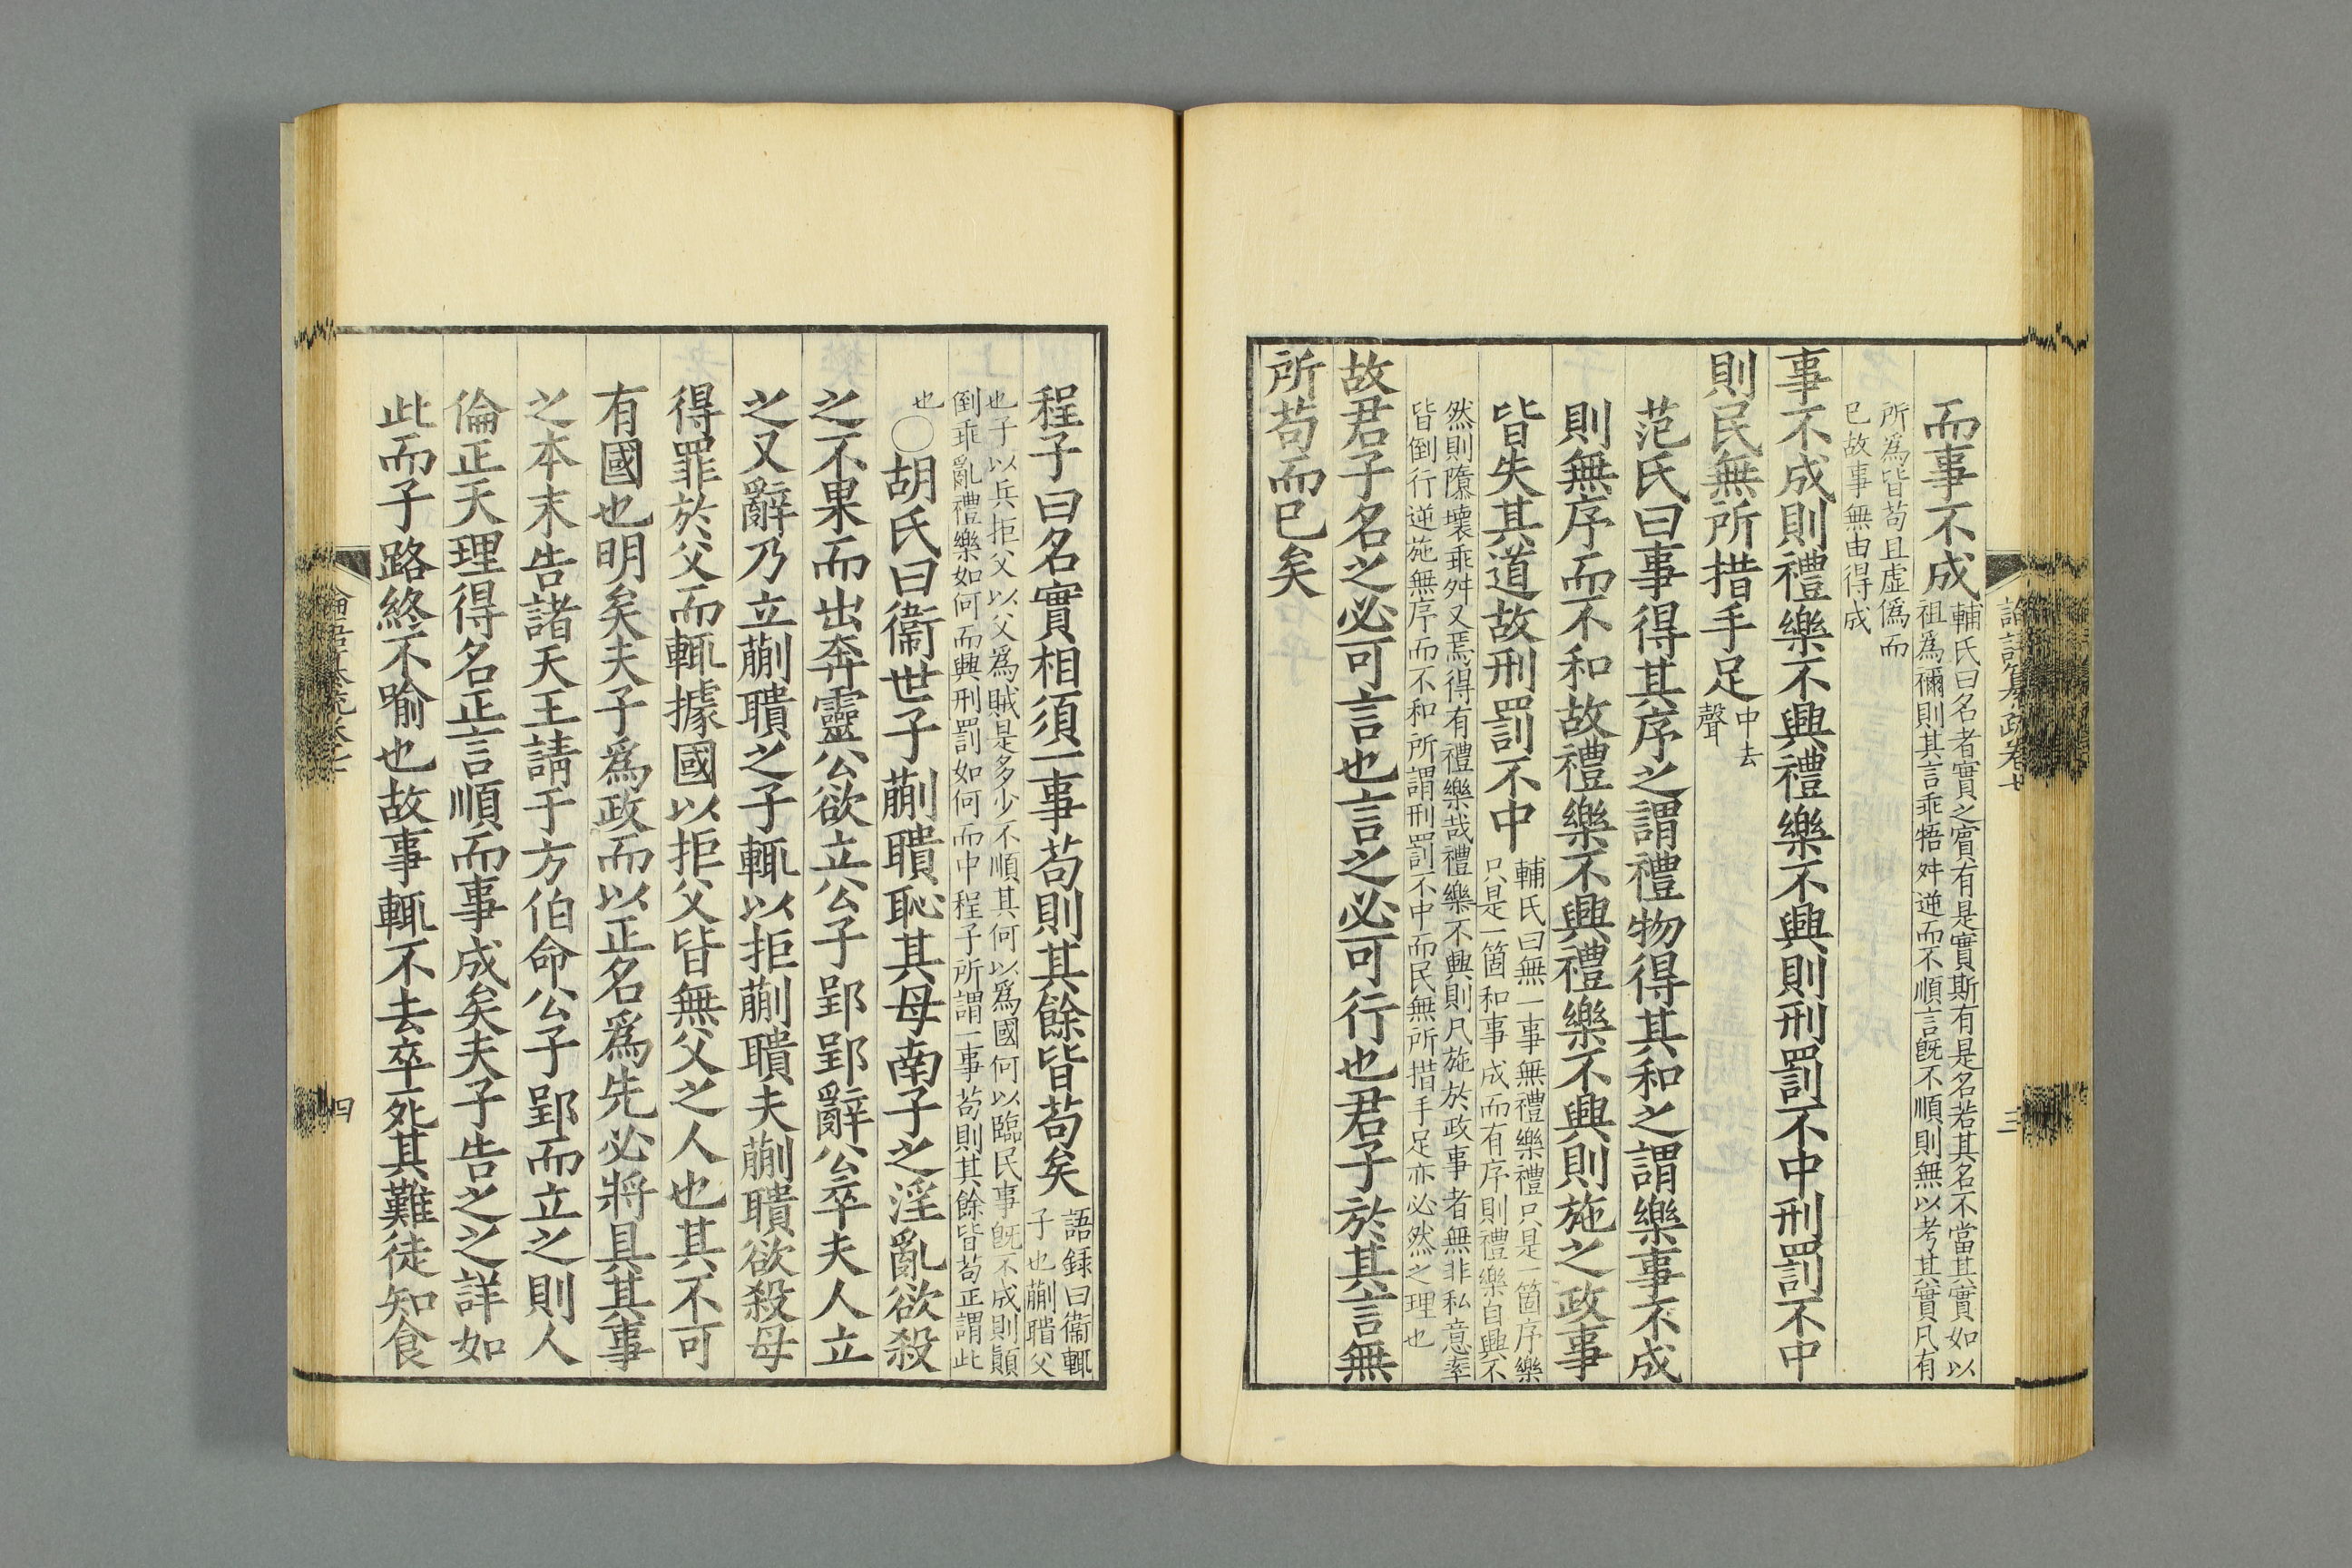 而事不成輔氏曰名者實之賓有是實斯有是名若其名不當其實如以
祖爲禰則其言乖牾舛逆而不順言旣不順則無以考其實凡有
所爲皆苟且虛僞而
已故事無由得成
事不成則禮樂不興禮樂不興則刑罰不中刑罰不中
則民無所措手足中去
聲
范氏曰事得其序之謂禮物得其和之謂樂事不成
則無序而不和故禮樂不興禮樂不興則施之政事
皆失其道故刑罰不中輔氏曰無一事無禮樂禮只是一箇序樂
只是一箇和事成而有序則禮樂自興不
然則隳壞乖舛又焉得有禮樂哉禮樂不興則凡施於政事者無非私意率
皆倒行逆施無序而不和所謂刑罰不中而民無所措手足亦必然之理也
故君子名之必可言也言之必可行也君子於其言無
所苟而已矣
論語纂疏卷七
三
程子曰名實相須一事苟則其餘皆苟矣語録曰衞輒
子也蒯聵父
也子以兵拒父以父爲賊是多少不順其何以爲國何以臨民事旣不成則顚
倒乖亂禮樂如何而興刑罰如何而中程子所謂一事苟則其餘皆苟正謂此
也〇胡氏曰衞世子蒯聵恥其母南子之淫亂欲殺
之不果而出奔靈公欲立公子郢郢辭公卒夫人立
之又辭乃立蒯聵之子輒以拒蒯聵夫蒯聵欲殺母
得罪於父而輒據國以拒父皆無父之人也其不可
有國也明矣夫子爲政而以正名爲先必將具其事
之本末告諸天王請于方伯命公子郢而立之則人
倫正天理得名正言順而事成矣夫子告之之詳如
此而子路終不喻也故事輒不去卒死其難徒知食
論語纂疏卷七
四